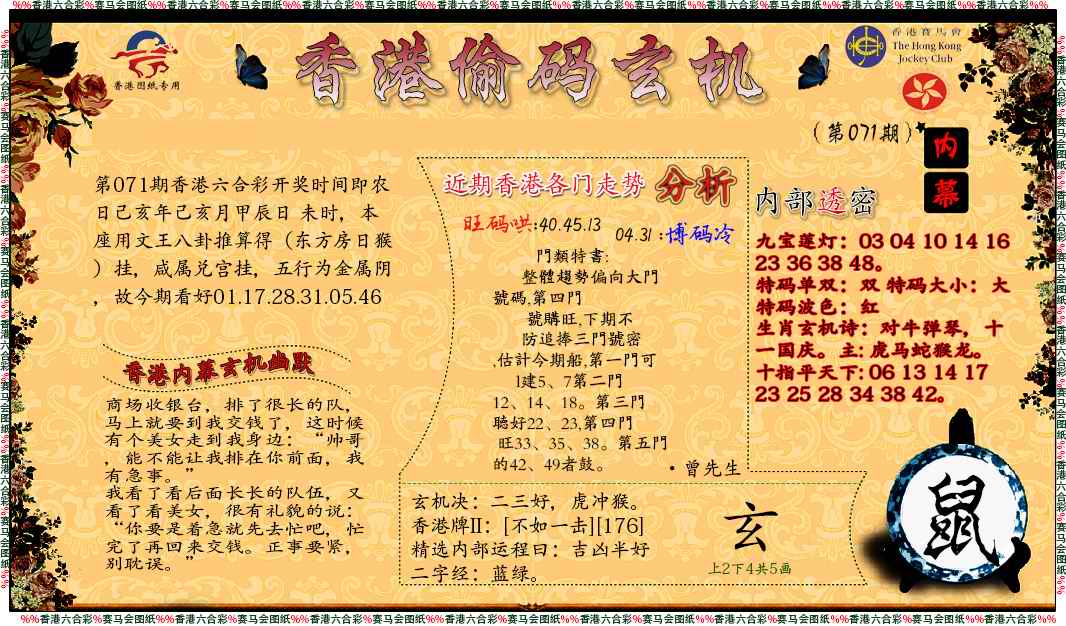 %%香港六合彩%赛马会图纸%%香港六合彩%赛马会图纸%%香港六合彩%赛马会图纸%%香港六合彩%赛马会图纸%%香港六合彩%赛马会图纸%%香港六合彩%赛马会图纸%%香港六合彩%赛马会图纸%%香港六合彩%%
香港图纸专用
香港偷码玄机
香港賽馬會
The Hong Kong
Jockey Club
(第071期)
内
幕
第071期香港六合彩开奖时间即农
日己亥年己亥月甲辰日 未时，本
座用文王八卦推算得（东方房日猴
）挂，咸属兑宫挂，五行为金属阴
，故今期看好01.17.28.31.05.46
香港内幕玄机幽默
商场收银台，排了很长的队，
马上就要到我交钱了，这时候
有个美女走到我身边：“帅哥
，能不能让我排在你前面，我
有急事。”
我看了看后面长长的队伍，又
看了看美女，很有礼貌的说：
“你要是着急就先去忙吧，忙
完了再回来交钱。正事要紧，
别耽误。”
近期香港各门走势 分析
旺码哄:40.45.13
04.31 :博码冷
門類特書:
整體趨勢偏向大門
號碼,第四門
號購旺,下期不
防追捧三門號密
,估計今期船,第一門可
1建5、7第二門
12、14、18。第三門
聽好22、23,第四門
旺33、35、38。第五門
的42、49者鼓。
·曾先生
玄机决：二三好，虎冲猴。
香港牌II：[不如一击][176]
精选内部运程曰：吉凶半好
二字经：蓝绿。
玄
上2下4共5画
内部透密
九宝莲灯：03 04 10 14 16
23 36 38 48。
特码单双：双 特码大小：大
特码波色：红
生肖玄机诗：对牛弹琴，十
一国庆。主: 虎马蛇猴龙。
十指平天下: 06 13 14 17
23 25 28 34 38 42。
鼠
%%香港六合彩%赛马会图纸%%香港六合彩%赛马会图纸%%香港六合彩%赛马会图纸%%香港六合彩%赛马会图纸%%香港六合彩%赛马会图纸%%香港六合彩%赛马会图纸%%香港六合彩%赛马会图纸%%香港六合彩%%